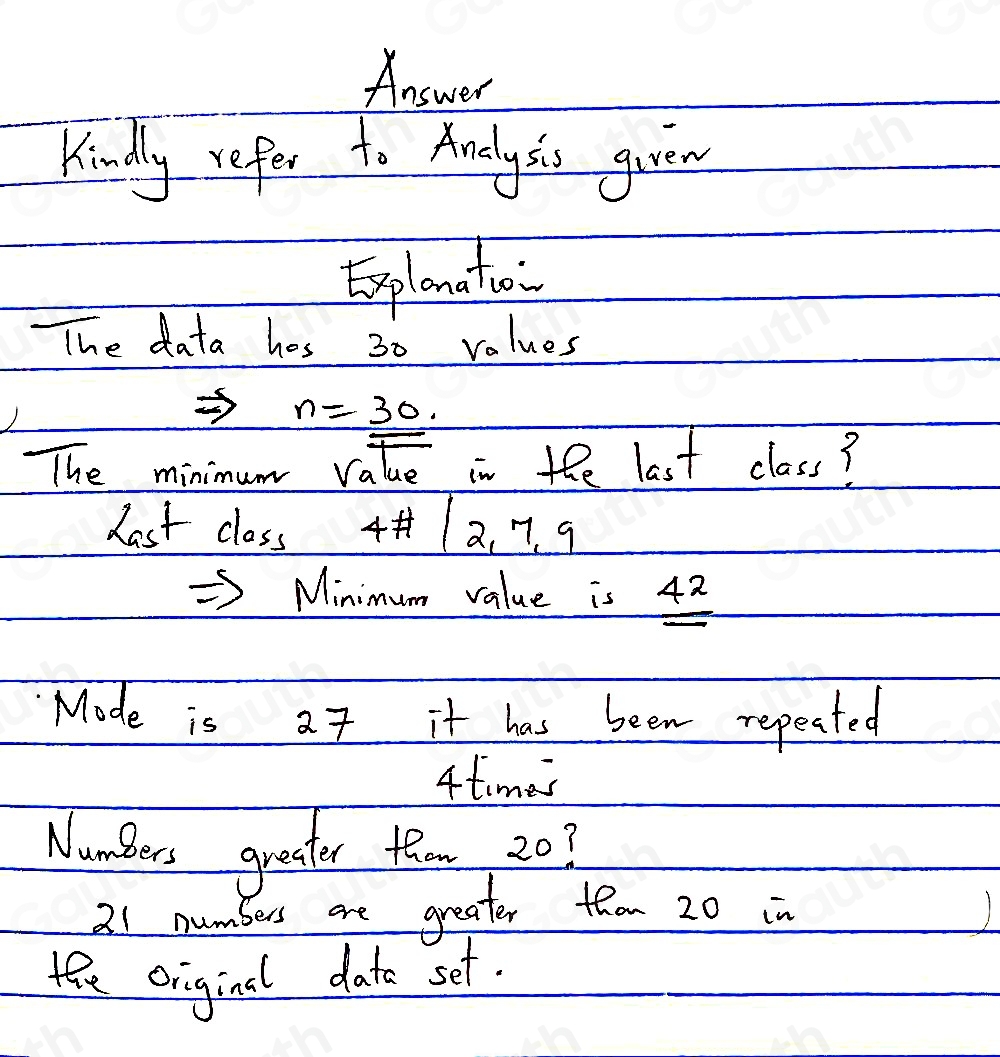 Answer
Kindly refer to Analysis given
Explanation
The data has 30 values
⇒ n = 30.
The minimum value in the last class?
Last class 4# | 2, 7, 9
⇒ Minimum value is 42
Mode is 27 it has been repeated
4 times
Numbers greater than 20?
21 numbers are greater than 20 in
the original data set.